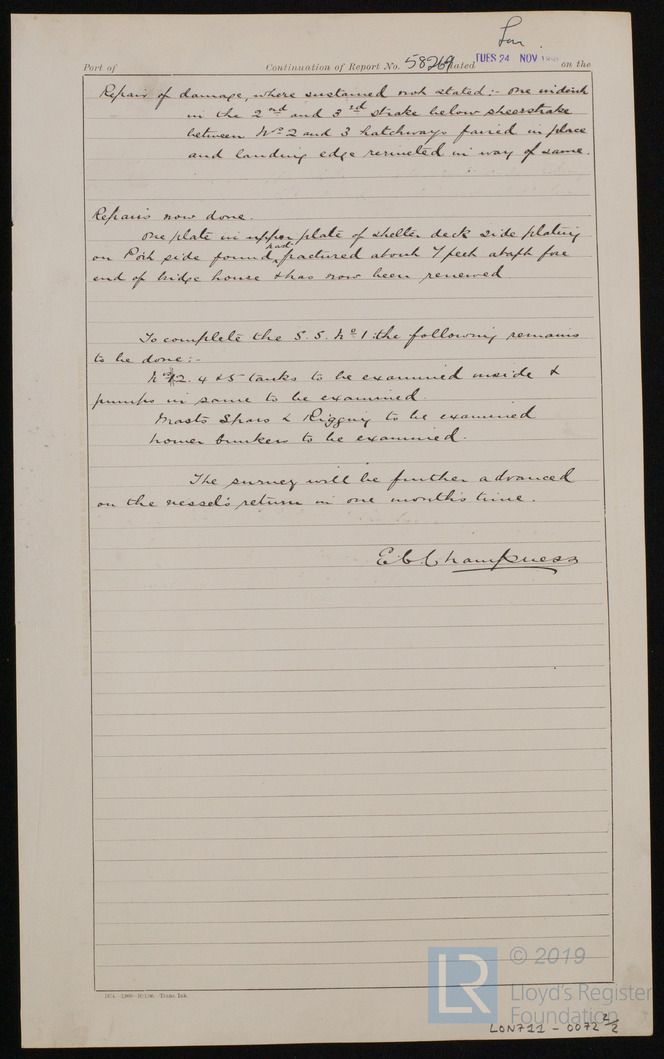 Lon.
Port of Continuation of Report No. 58269 dated TUES 24 NOV on the
Repair of damage, where sustained not stated:- One indent
in the 2nd and 3rd strake below sheerstrake
between No 2 and 3 hatchways faired in place
and landing edge reriveted in way of same.
Repairs now done.
One plate in upper plate of shelter deck side plating
on Port side found fractured about 7 feet abaft fore
end of bridge house & has now been renewed
To complete the S.S. No 1 the following remains
to be done:-
Nos 2. 4 & 5 tanks to be examined inside &
pumps in same to be examined.
Masts Spars & Rigging to be examined
bunkers to be examined.
The survey will be further advanced
on the vessel's return in one month's time.
E.C. Champness
Trans. Ink.
LR
© 2019
Lloyd's Register
Foundation
LON711-0072 2/2